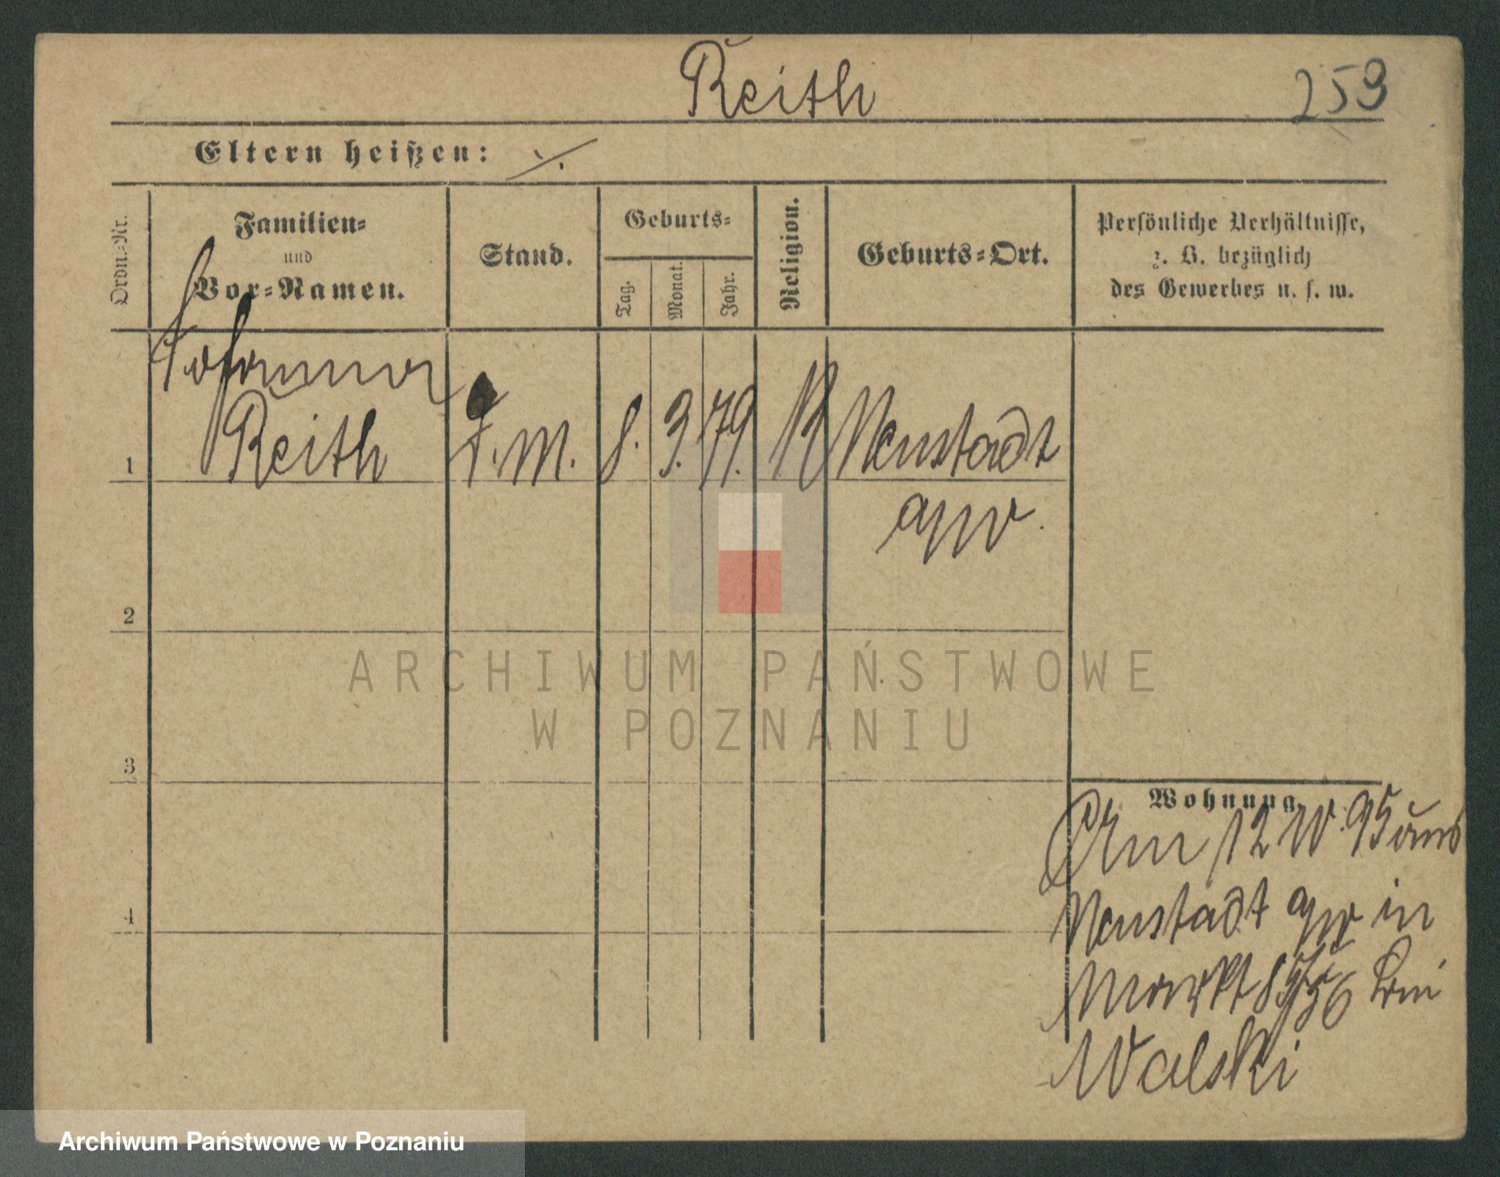 Reith
259
Eltern heißen: ./.
Ordn.-Nr.
Familien-
und
Vor-Namen.
Stand.
Geburts-
Tag.
Monat.
Jahr.
Religion.
Geburts-Ort.
Persönliche Verhältnisse,
z. B. bezüglich
des Gewerbes u. s. w.
Johanna
Reith
1
D. M.
8.
9.
79.
K
Neustadt
a/w.
2
3
4
Wohnung.
Am 12 IV. 95 aus
Neustadt a/w in
Markt 85/86 bei
Walski
ARCHIWUM PAŃSTWOWE
W POZNANIU
Archiwum Państwowe w Poznaniu